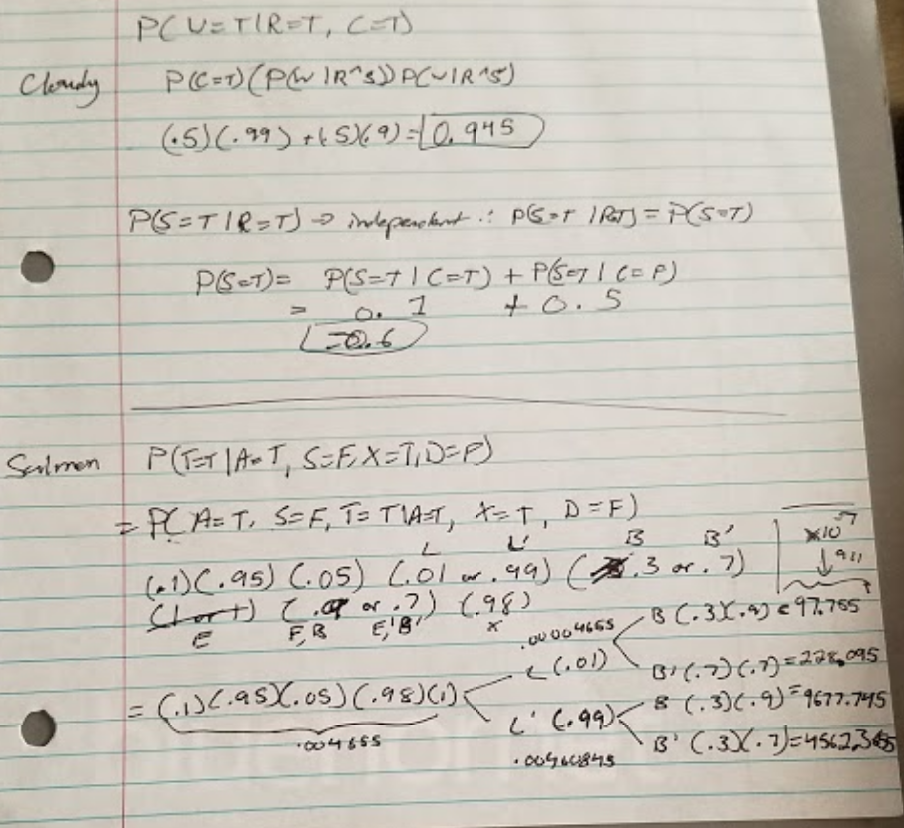 P(W=T|R=T, C=T)
Cloudy P(C=T)(P(W|R^S))P(W|R^S)
(.5)(.99) + (.5)(.9) = 0.945
P(S=T|R=T) → independent ∴ P(S=T|R=T) = P(S=T)
P(S=T) = P(S=T|C=T) + P(S=T|C=F)
= 0.1 + 0.5
= 0.6
Salmon P(T=T|A=T, S=F, X=T, D=F)
= P(A=T, S=F, T=T|A=T, X=T, D=F)
L L' B B' x10^-7
(.1)(.95)(.05)(.01 or .99)(.3 or .7) ↓ all
(1 or 1) (.9 or .7) (.98)
E E,B E,'B' x
.00004655 B (.3)(.9) = 97.755
L (.01) B' (.7)(.7) = 228.095
= (.1)(.95)(.05)(.98)(1)
L' (.99) B (.3)(.9) = 9677.745
.004655 B' (.3)(.7) = 4562.3655
.00460845